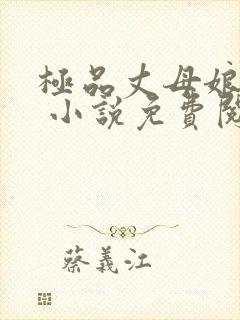 極品丈母娘
小說免費閱
蔡義江